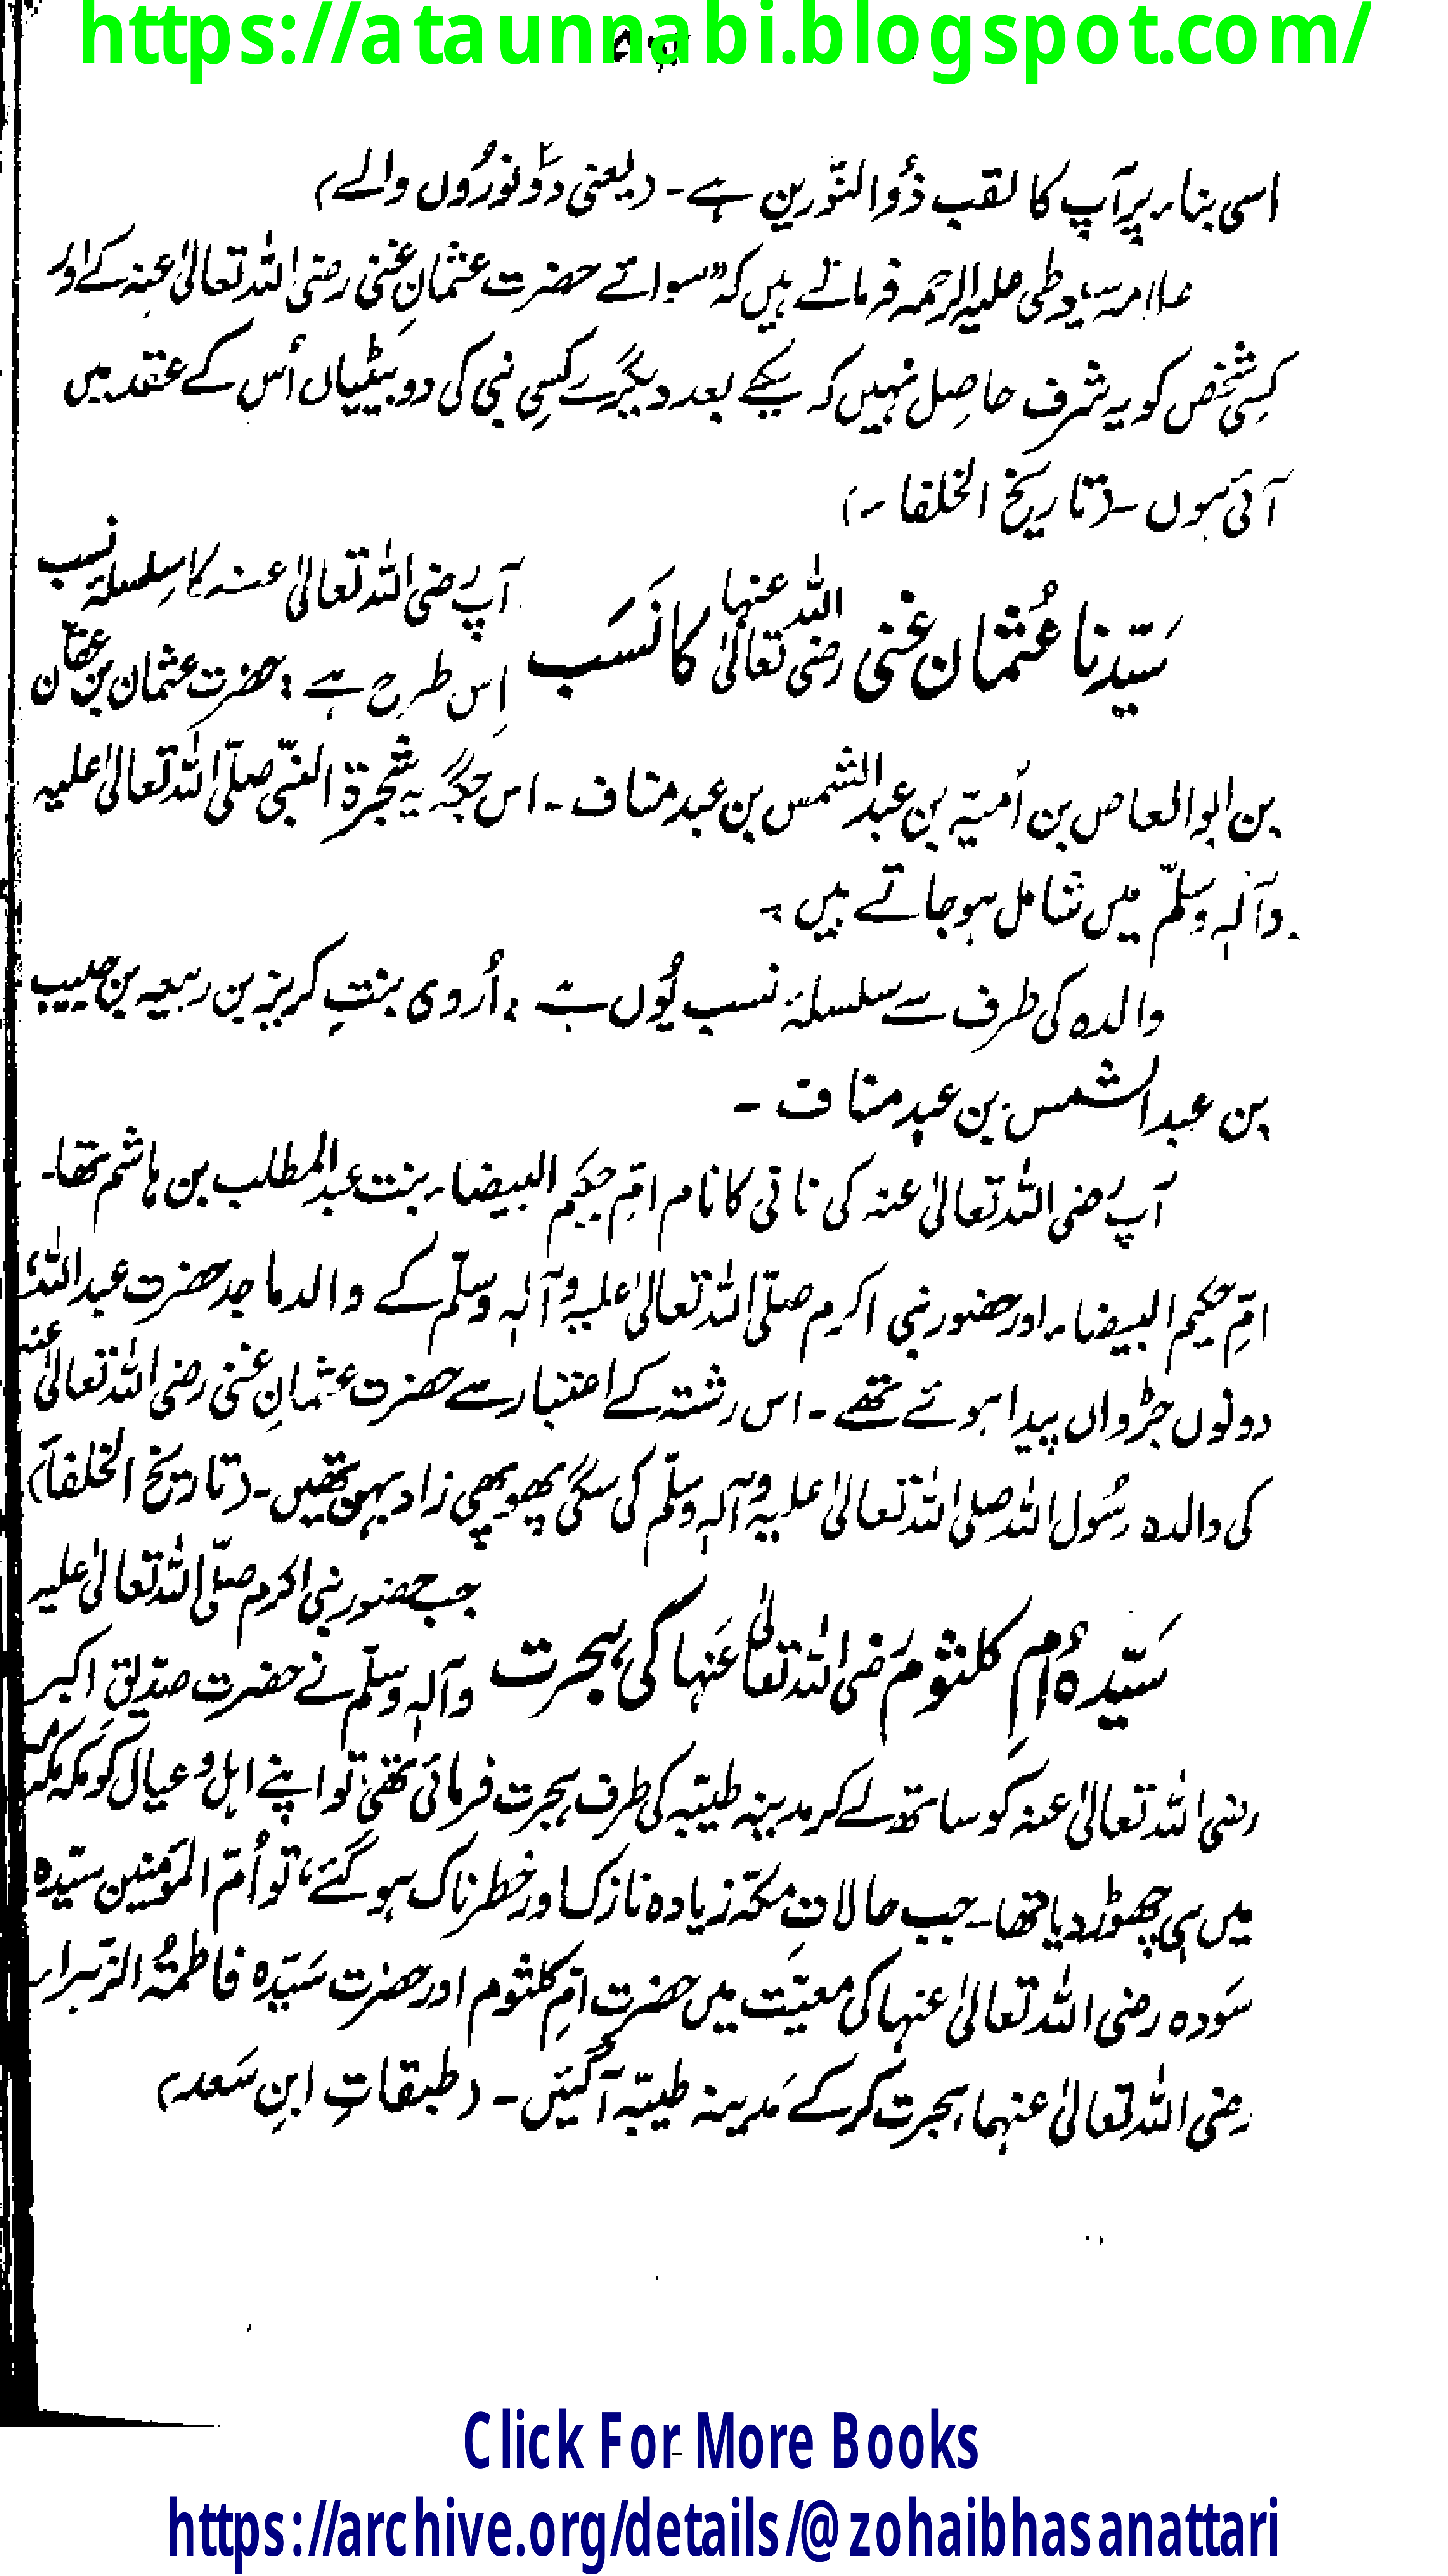 https://ataunnabi.blogspot.com/
اسی بناء پر آپ کا لقب ذُوالنّورین ہے۔ (یعنی دَو نورُوں والے)
علامہ سیوطی علیہ الرحمہ فرماتے ہیں کہ "سوائے حضرت عثمانِ غنی رضی اللہ تعالیٰ عنہ کے اور
کِسی شخص کو یہ شرف حاصِل نہیں کہ یکے بعد دیگرے کسِی نبی کی دو بیٹیاں اُس کے عقد میں
آئی ہوں۔ (تاریخ الخلفاء)
سَیّدنا عُثمان غنی رضی اللہ تعالیٰ عنہا کا نَسَب
آپ رضی اللہ تعالیٰ عنہ کا سِلسلۂ نسب
اِس طرح ہے : حضرت عثمان بن عفّان
بن ابوالعاص بن اُمیّہ بن عبدالشمس بن عبد مناف۔ اس جگہ یہ شجرۃ النّبی صلّی اللہ تعالیٰ علیہ
وآلہٖ وسلّم میں شامل ہوجاتے ہیں۔
والدہ کی طرف سے سلسلۂ نسب یُوں ہے : اُروی بنتِ کریز بن ربیعہ بن حبیب
بن عبدالشمس بن عبد مناف ۔
آپ رضی اللہ تعالیٰ عنہ کی نانی کا نام امِّ حکیم البیضاء بنت عبدالمطلب بن ہاشم تھا۔
امِّ حکیم البیضاء اور حضور نبی اکرم صلّی اللہ تعالیٰ علیہ وآلہٖ وسلّم کے والد ماجد حضرت عبداللہ
دونوں جڑواں پیدا ہوئے تھے۔ اس رشتہ کے اعتبار سے حضرت عثمانِ غنی رضی اللہ تعالیٰ عنہ
کی والدہ رسُول اللہ صلی اللہ تعالیٰ علیہ وآلہٖ وسلّم کی سگی پھوپھی زاد بہن تھیں۔ (تاریخ الخلفاء)
سَیّدہ اُمِ کلثوم رَضی اللہ تعالیٰ عَنہا کی ہجرت
جب حضور نبی اکرم صلّی اللہ تعالیٰ علیہ
وآلہٖ وسلّم نے حضرت صدّیقِ اکبر
رضی اللہ تعالیٰ عنہ کو ساتھ لے کر مدینہ طیّبہ کی طرف ہجرت فرمائی تھی تو اپنے اہل و عیال کو مکہ مکرمہ
میں ہی چھوڑ دیا تھا۔ جب حالاتِ مکّہ زیادہ نازک اور خطرناک ہو گئے، تو اُمّ المؤمنین سیّدہ
سَودہ رضی اللہ تعالیٰ عنہا کی معیّت میں حضرت امِّ کلثوم اور حضرت سَیّدہ فاطمۃُ الزّہراء
رضی اللہ تعالیٰ عنہما ہجرت کرکے مَدینہ طیّبہ آ گئیں۔ (طبقاتِ ابنِ سَعد)
Click For More Books
https://archive.org/details/@zohaibhasanattari